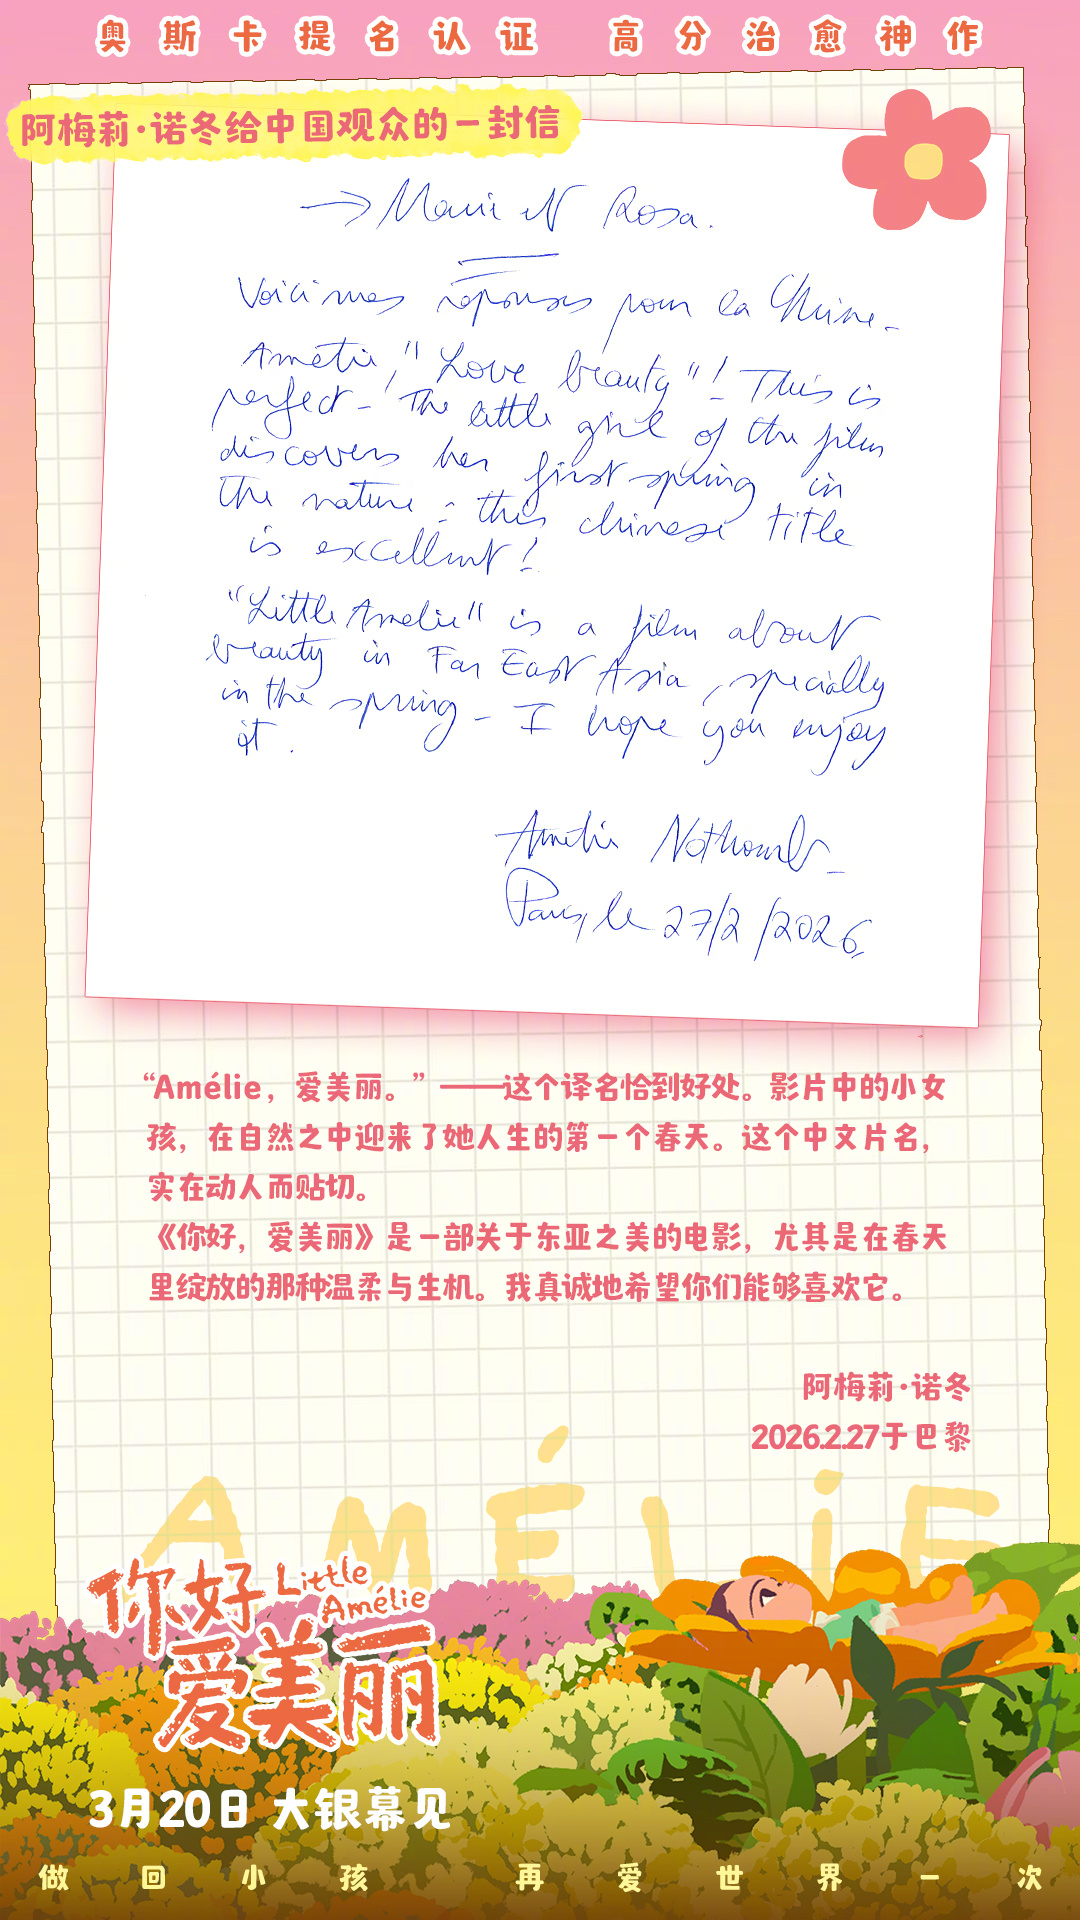 奥斯卡提名认证 高分治愈神作
阿梅莉·诺冬给中国观众的一封信
→ Marie et Rosa.
Voici mes réponses pour la Chine.
Amélie, "Love beauty"! This is
perfect - The little girl of the film
discovers her first spring in
the nature - this chinese title
is excellent!
"Little Amélie" is a film about
beauty in Far East Asia, specially
in the spring - I hope you enjoy
it.
Amélie Nothomb -
Paris, le 27/2/2026
“Amélie，爱美丽。”——这个译名恰到好处。影片中的小女
孩，在自然之中迎来了她人生的第一个春天。这个中文片名，
实在动人而贴切。
《你好，爱美丽》是一部关于东亚之美的电影，尤其是在春天
里绽放的那种温柔与生机。我真诚地希望你们能够喜欢它。
阿梅莉·诺冬
2026.2.27于巴黎
AMÉLiE
你好 Little
Amélie
爱美丽
3月20日 大银幕见
做回小孩 再爱世界一次